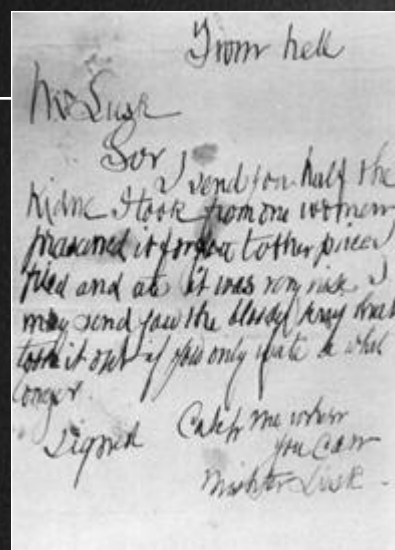 From hell
Mr Lusk
Sor
I send you half the
Kidne I took from one women
prasarved it for you tother piece I
fried and ate it was very nise I
may send you the bloody knif that
took it out if you only wate a whil
longer.
Signed Catch me when
you can
Mishter Lusk.